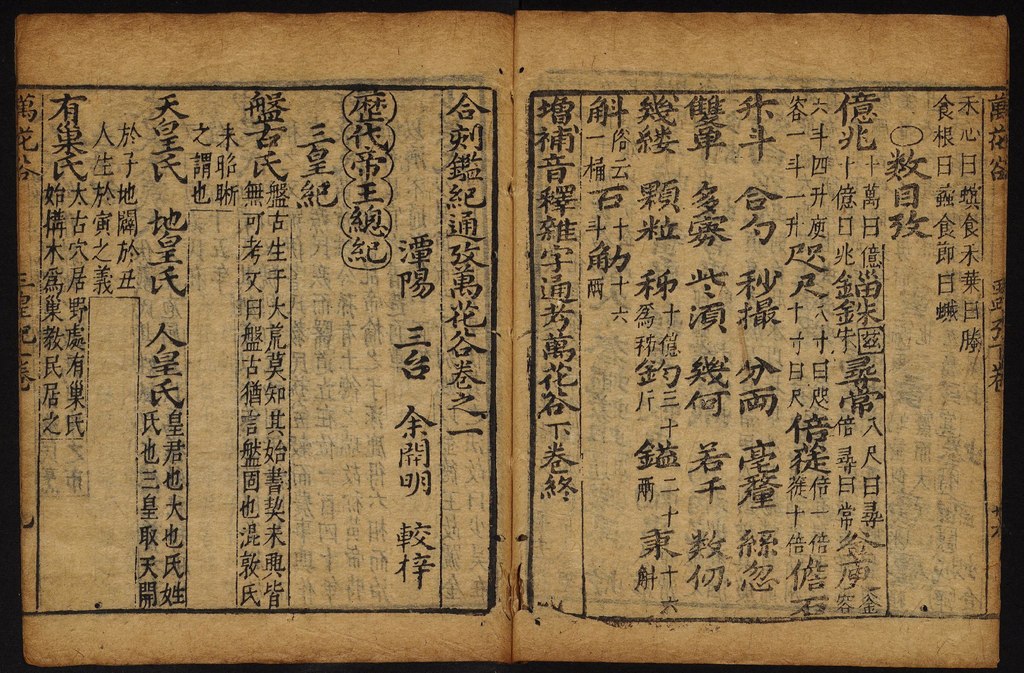 萬花谷
木心曰螟食木葉曰䘃
食根曰蟊食節曰蟘
〇數目攷
億兆十萬曰億十億曰兆錙銖尋常八尺曰尋倍尋曰常釜庾釜容
六斗四升庾容一斗一升咫尺八寸曰咫十寸曰尺倍蓰倍一倍蓰十倍儋石
升斗 合勺 秒撮 分兩 毫釐 絲忽
雙單 多寡 些須 幾何 若干 數仞
幾縷 顆粒 秭十億為秭鈞三十斤 鎰二十兩 秉十六斛
斛俗云一桶石十斗觔十六兩
增補音釋雜字通考萬花谷下卷終
合刻鑑紀通攷萬花谷卷之一
潭陽 三台 余開明 較梓
歷代帝王總紀
三皇紀
盤古氏盤古生于大荒莫知其始書契未興皆無可考文曰盤古猶言盤固也混敦氏
未昭晰之謂也
天皇氏 地皇氏 人皇氏皇君也大也氏姓氏也三皇取天開
於子地闢於丑人生於寅之義
有巢氏太古穴居野處有巢氏始構木為巢教民居之
萬花谷 三皇紀一卷